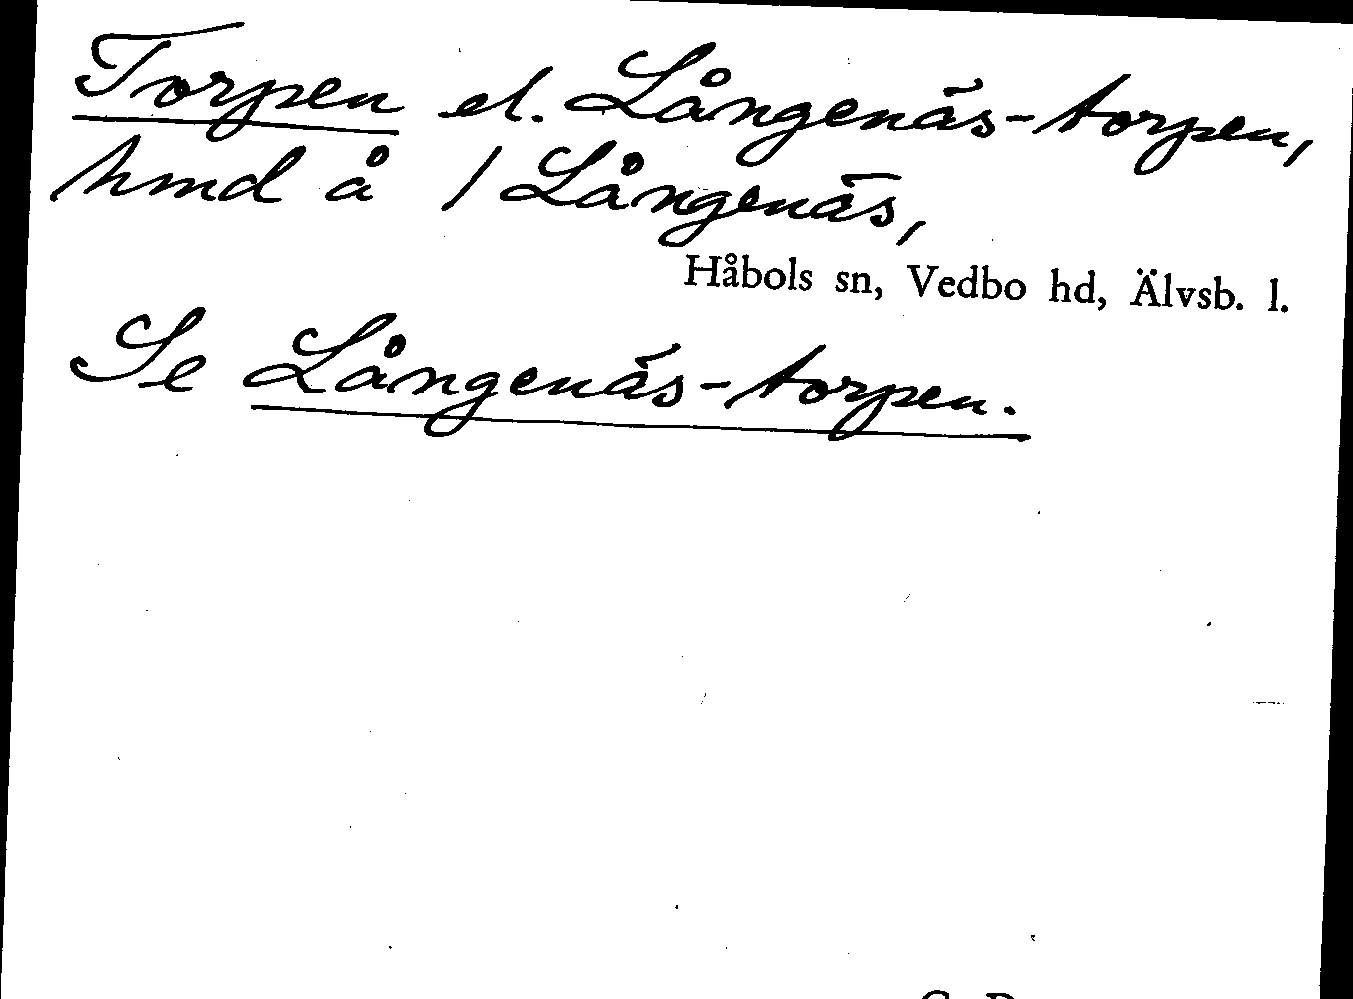 Torpen el. Långenäs-torpen,
hmd å 1 Långenäs,
Håbols sn, Vedbo hd, Älvsb. l.
Se Långenäs-torpen.